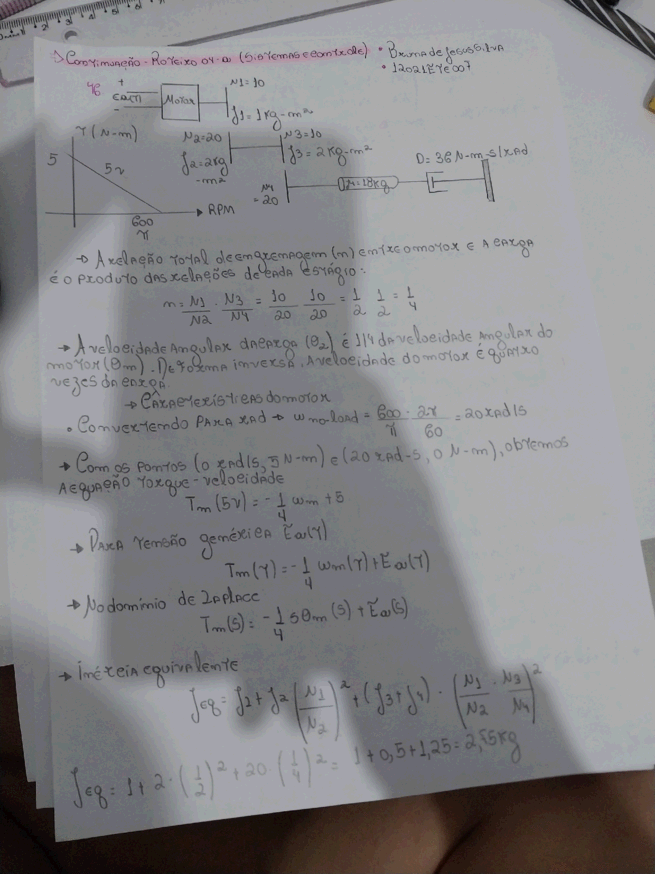 → Continuação - Roteiro 04.0 (Sistemas e controle) • Bruna de Jesus Silva
• 12021ETE007
4)
+
ea(t)
-
Motor
N1=10
J1=1kg-m²
T(N-m)
5
5v
600
π
RPM
N2=20
J2=2kg
-m²
N3=10
J3=2kg-m²
N4
=20
J4=18kg
D=36 N-m-s/rad
→ A relação total de engrenagem (n) entre o motor e a carga
é o produto das relações de cada estágio:
n = N1/N2 · N3/N4 = 10/20 · 10/20 = 1/2 · 1/2 = 1/4
→ A velocidade angular da carga (θ2) é 1/4 da velocidade angular do
motor (θm). De forma inversa, a velocidade do motor é quatro
vezes da carga.
→ Características do motor
• Convertendo para rad → ω no-load = 600/π · 2π/60 = 20 rad/s
→ Com os pontos (0 rad/s, 5 N-m) e (20 rad-s, 0 N-m), obtemos
a equação torque-velocidade
Tm(5v) = -1/4 ωm + 5
→ Para tensão genérica Ea(T)
Tm(T) = -1/4 ωm(T) + Ea(T)
→ No domínio de Laplace
Tm(s) = -1/4 sθm(s) + Ea(s)
→ Inércia equivalente
Jeq = J1 + J2 (N1/N2)² + (J3+J4) · (N1/N2 · N3/N4)²
Jeq = 1 + 2 · (1/2)² + 20 · (1/4)² = 1+0,5+1,25 = 2,75kg